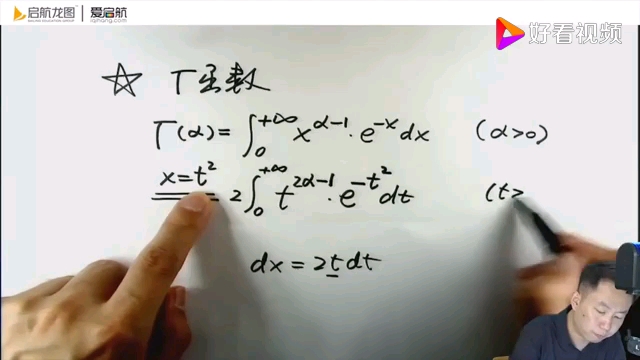 启航龙图 爱启航
iqihang.com
好看视频
☆ Γ函数
Γ(α) = ∫₀^{+∞} x^{α-1} · e^{-x} dx (α>0)
x=t² = 2∫₀^{+∞} t^{2α-1} · e^{-t²} dt (t>
dx = 2t dt